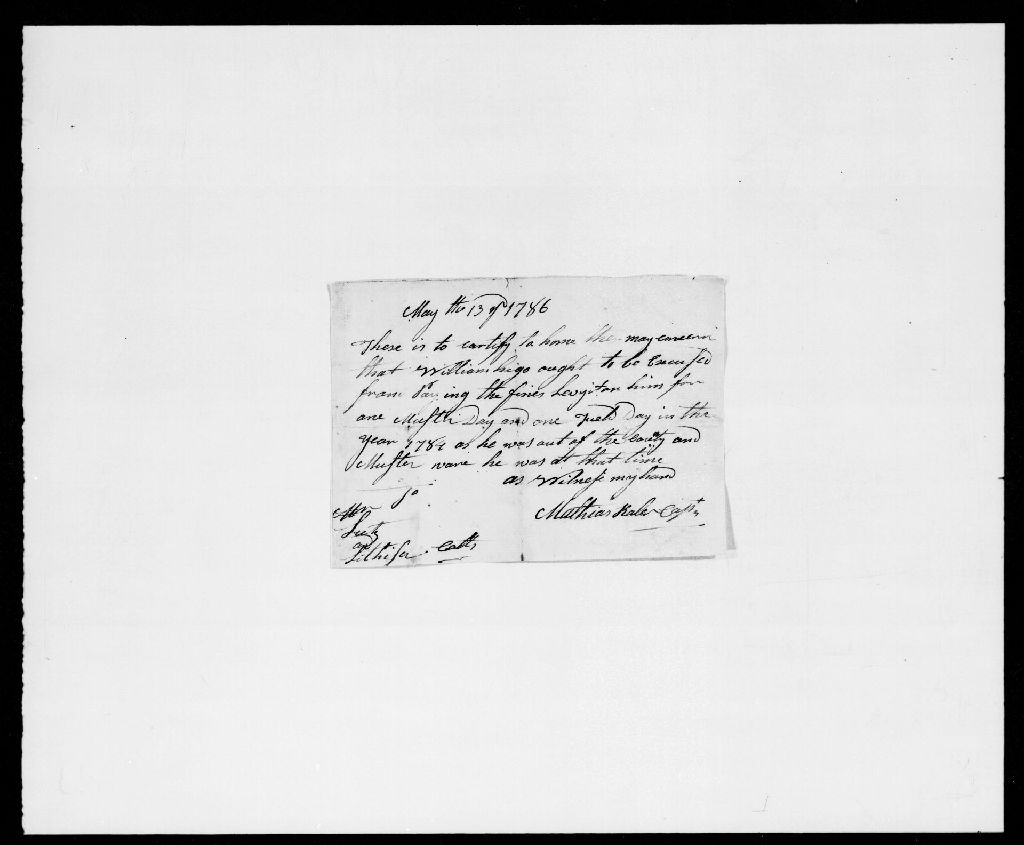 May the 13 of 1786
These is to certify to home the may concern
that William ought to be Excused
from Paying the fines Levyt on him for
one Muster Day and one Field Day in the
year 1784 as he was out of the County and
Muster ware he was at that time
as Witness my hand
To
Mathias Kale Capt
and